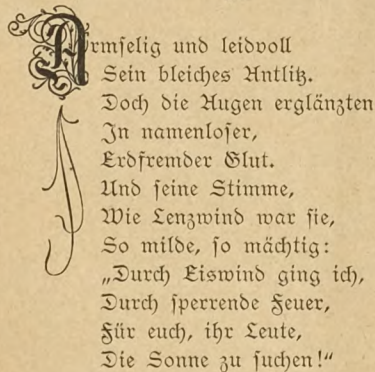 Armselig und leidvoll
Sein bleiches Antlitz.
Doch die Augen erglänzten
In namenloser,
Erdfremder Glut.
Und seine Stimme,
Wie Lenzwind war sie,
So milde, so mächtig:
„Durch Eiswind ging ich,
Durch sperrende Feuer,
Für euch, ihr Leute,
Die Sonne zu suchen!“